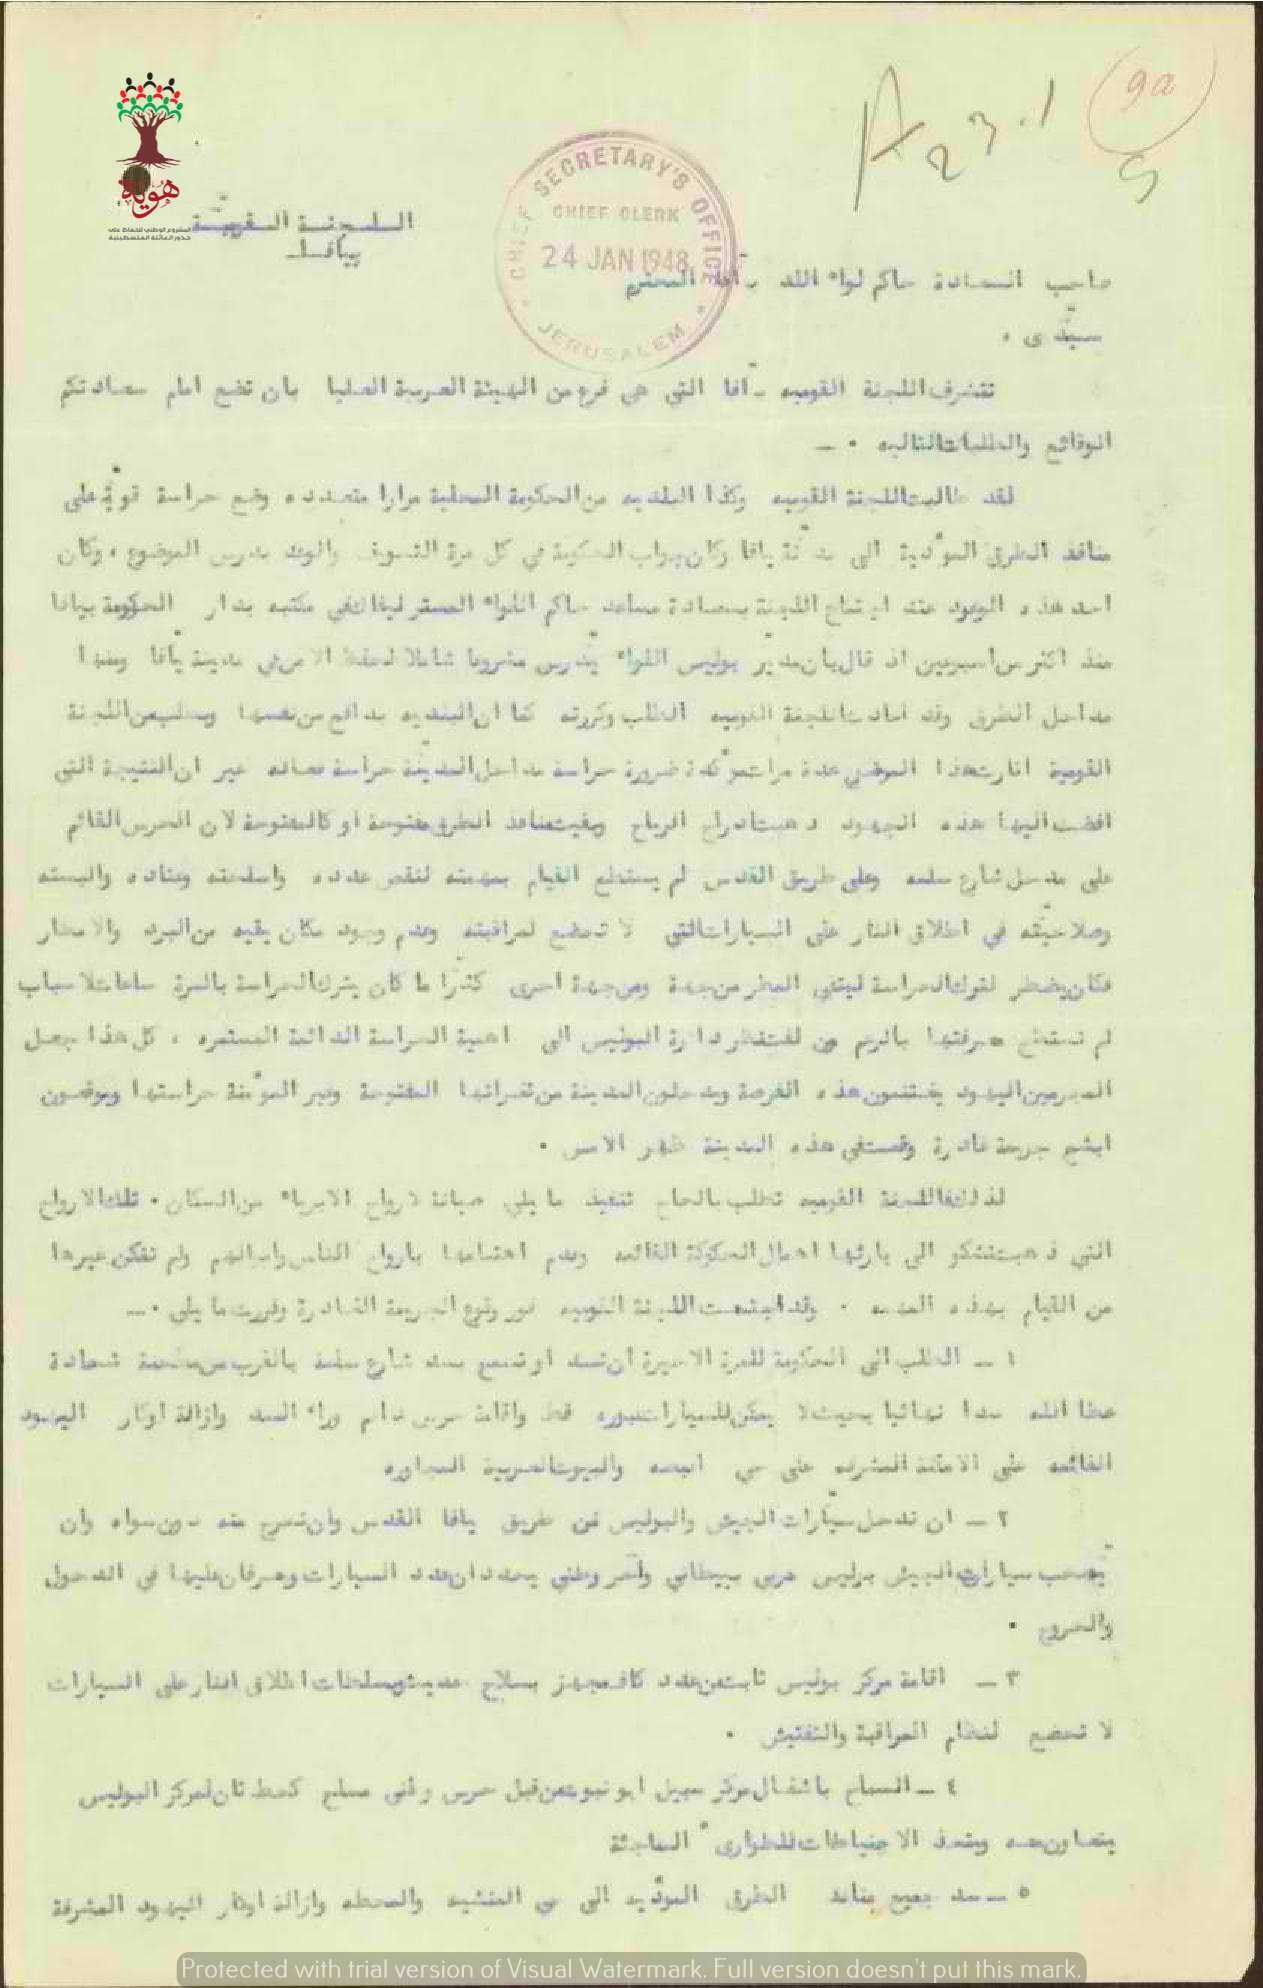 9a
A 23.1
هوية
المشروع الوطني للحفاظ على
جذور العائلة الفلسطينية
CHIEF SECRETARY'S OFFICE
CHIEF CLERK
24 JAN 1948
JERUSALEM
اللجنة القومية
بيافا
صاحب السعادة حاكم لواء اللد يافا المحترم
سيدى ،
تتشرف اللجنة القوميه يافا التي هي فرع من الهيئة العربية العليا بان تضع امام سعادتكم
الوقائع والطلبات التاليه . ـ
لقد طالبت اللجنة القوميه وكذا البلديه من الحكومة المحلية مرارا متعدده وضع حراسة قوية على
منافذ الطرق المؤدية الى مدينة يافا وكان جواب الحكومة في كل مرة التسويف والوعد بدرس الموضوع ، وكان
احد هذه الوعود عند اجتماع اللجنة بسعادة مساعد حاكم اللواء المستر في مكتبه بدار الحكومة بيافا
منذ اكثر من اسبوعين اذ قال بان مدير بوليس اللواء يدرس مشروعا شاملا لحفظ الامن في مدينة يافا ومنها
مداخل الطرق وقد اعادت اللجنة القوميه الطلب وكررته كما ان البلديه بدافع من نفسها وبطلب من اللجنة
القومية اثارت هذا الموضوع عدة مرات مؤكدة ضرورة حراسة مداخل المدينة حراسة فعاله غير ان النتيجة التى
افضت اليها هذه الجهود ذهبت ادراج الرياح وبقيت منافذ الطرق مفتوحة او كالمفتوحة لان الحرس القائم
على مدخل شارع سلمه وعلى طريق القدس لم يستطع القيام بمهمته لنقص عدده واسلحته وعتاده والبسته
وصلاحيته في اطلاق النار على السيارات التي لا تخضع لمراقبته وعدم وجود مكان يقيه من البرد والامطار
فكان يضطر لترك الحراسة ليتقى المطر من جهة ومن جهة اخرى كثيرا ما كان يترك الحراسة بالمرة ساعات لاسباب
لم نستطع معرفتها بالرغم من لفت نظر دائرة البوليس الى اهمية الحراسة الدائمة المستمره ، كل هذا جعل
المجرمين اليهود يغتنمون هذه الفرصة ويدخلون المدينة من ثغراتها المفتوحة وغير المؤمنة حراستها ويوقعون
ابشع جريمة غادرة وقعت في هذه المدينة ظهر الامس .
لذلك فاللجنة القوميه تطلب بالحاح تنفيذ ما يلي صيانة لارواح الابرياء من السكان . تلك الارواح
التي ذهبت تشكو الى بارئها اهمال الحكومة القائمه وعدم اهتمامها بارواح الناس وامالهم ولم تمكن غيرها
من القيام بهذه المهمه . وقد اجتمعت اللجنة القوميه فور وقوع الجريمة الغادرة وقررت ما يلى . ـ
١ ـ الطلب الى الحكومة للمرة الاخيرة ان تسد او تسمح بسد شارع سلمة بالقرب من مطحنة شحادة
عطا الله سدا نهائيا بحيث لا يمكن للسيارات عبوره قط واقامة حرس دائم وراء السد وازالة اوكار اليهود
القائمه على الامكنة المشرفه على حي والبيوت العربية المجاوره
٢ ـ ان تدخل سيارات الجيش والبوليس من طريق يافا القدس وان تخرج منه دون سواه وان
يصحب سيارات الجيش بوليس عربى بريطاني وآخر وطني يحددان عدد السيارات ويشرفان عليها في الدخول
والخروج .
٣ ـ اقامة مركز بوليس ثابت من عدد كاف مجهز بسلاح حديث وسلطات اطلاق النار على السيارات
لا تخضع لنظام المراقبة والتفتيش .
٤ ـ السماح باشغال مركز سبيل ابو نبوت من قبل حرس وطني مسلح كخط ثان لمركز البوليس
يتعاون معه ويتخذ الاحتياطات للطوارىء المفاجئة
٥ ـ سد جميع منافذ الطرق المؤديه الى حي المنشيه والمحطه وازالة اوكار اليهود المشرفة
Protected with trial version of Visual Watermark. Full version doesn't put this mark.